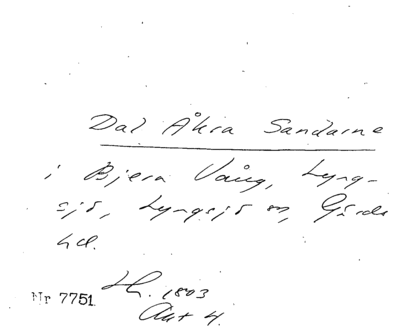 Dal Åkra Sandarne
i Bjera Vång, Lyng-
sjö, Lyngsjö sn, Gärds
hd.
Nr 7751 Lh. 1803
Akt 4.